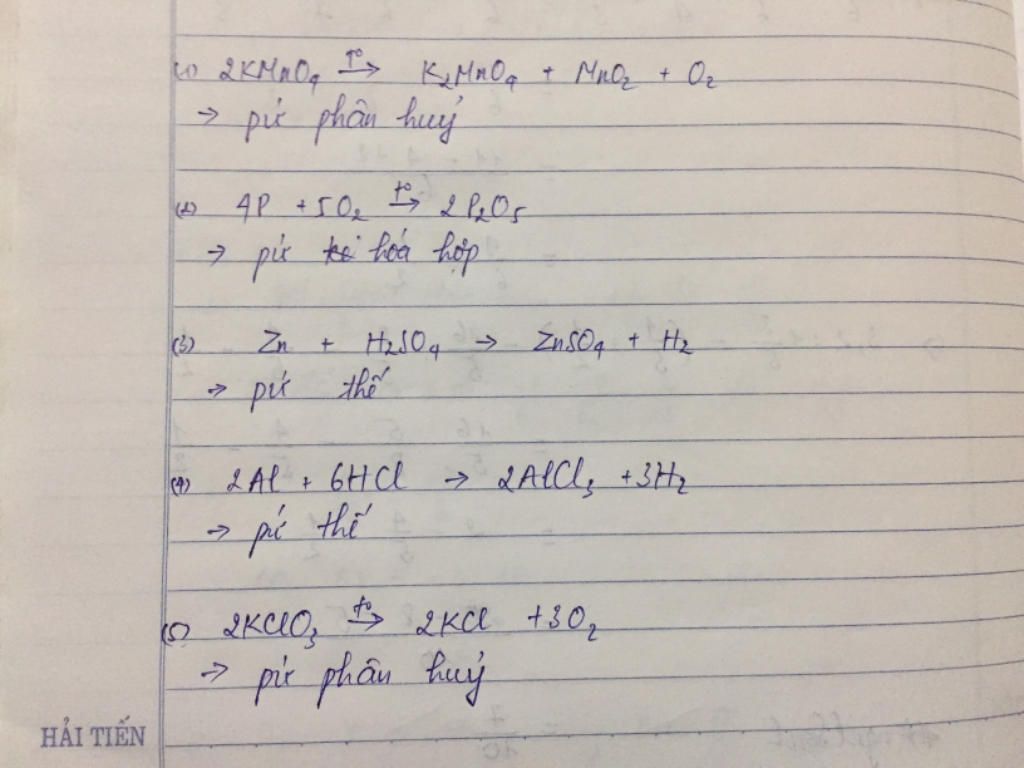 (1) 2KMnO₄ →(t°) K₂MnO₄ + MnO₂ + O₂
→ pứ phân huỷ
(2) 4P + 5O₂ →(t°) 2P₂O₅
→ pứ hoá hợp
(3) Zn + H₂SO₄ → ZnSO₄ + H₂
→ pứ thế
(4) 2Al + 6HCl → 2AlCl₃ + 3H₂
→ pứ thế
(5) 2KClO₃ →(t°) 2KCl + 3O₂
→ pứ phân huỷ
HẢI TIẾN